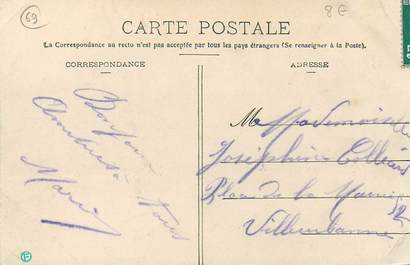 69
8 €
CARTE POSTALE
(La Correspondance au recto n'est pas acceptée par tous les pays étrangers (Se renseigner à la Poste).
CORRESPONDANCE
ADRESSE
Bonjour
Tous
Marie
M
Mademoiselle
Joséphine
Place de la
Villeurbanne